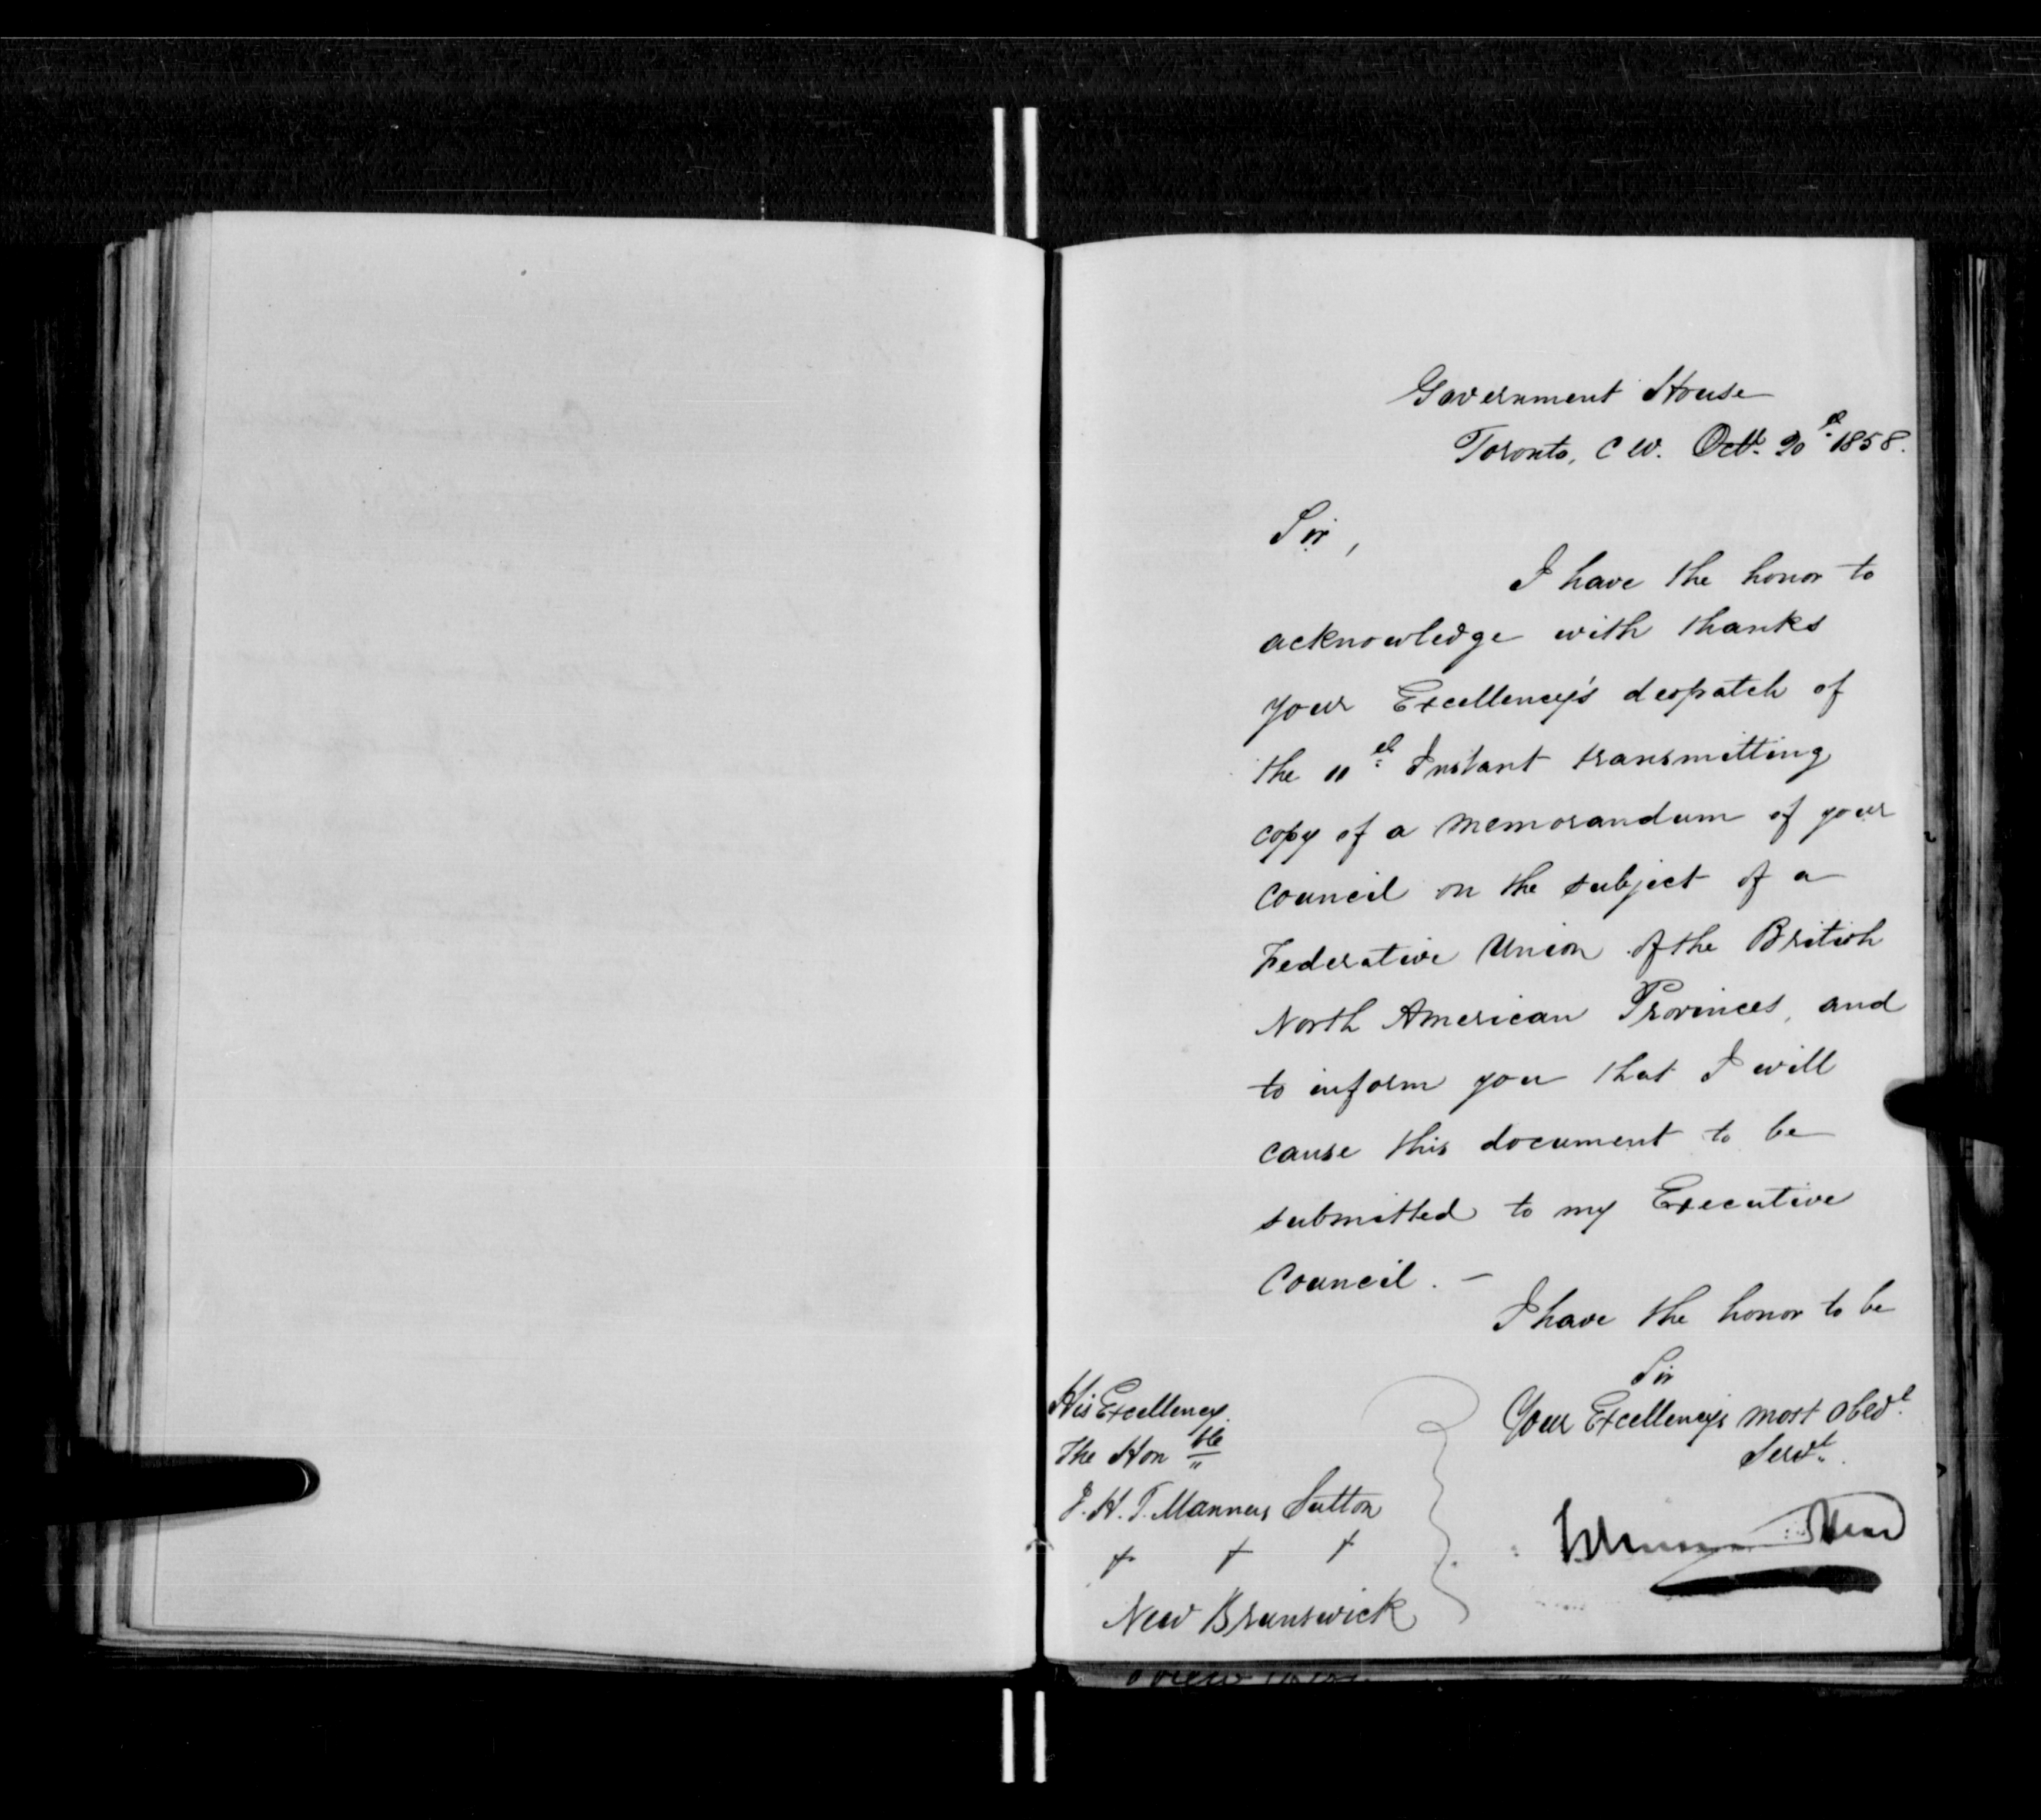 Government House
Toronto, C W. Octr. 20th 1858.
Sir,
I have the honor to
acknowledge with thanks
your Excellency's despatch of
the 11th Instant transmitting
copy of a memorandum of your
Council on the subject of a
Federative Union of the British
North American Provinces, and
to inform you that I will
cause this document to be
submitted to my Executive
Council. -
I have the honor to be
Sir
Your Excellency's most obedt
Servt.
Head
His Excellency
The Honble
J. H. T. Manners Sutton
+ + +
New Brunswick